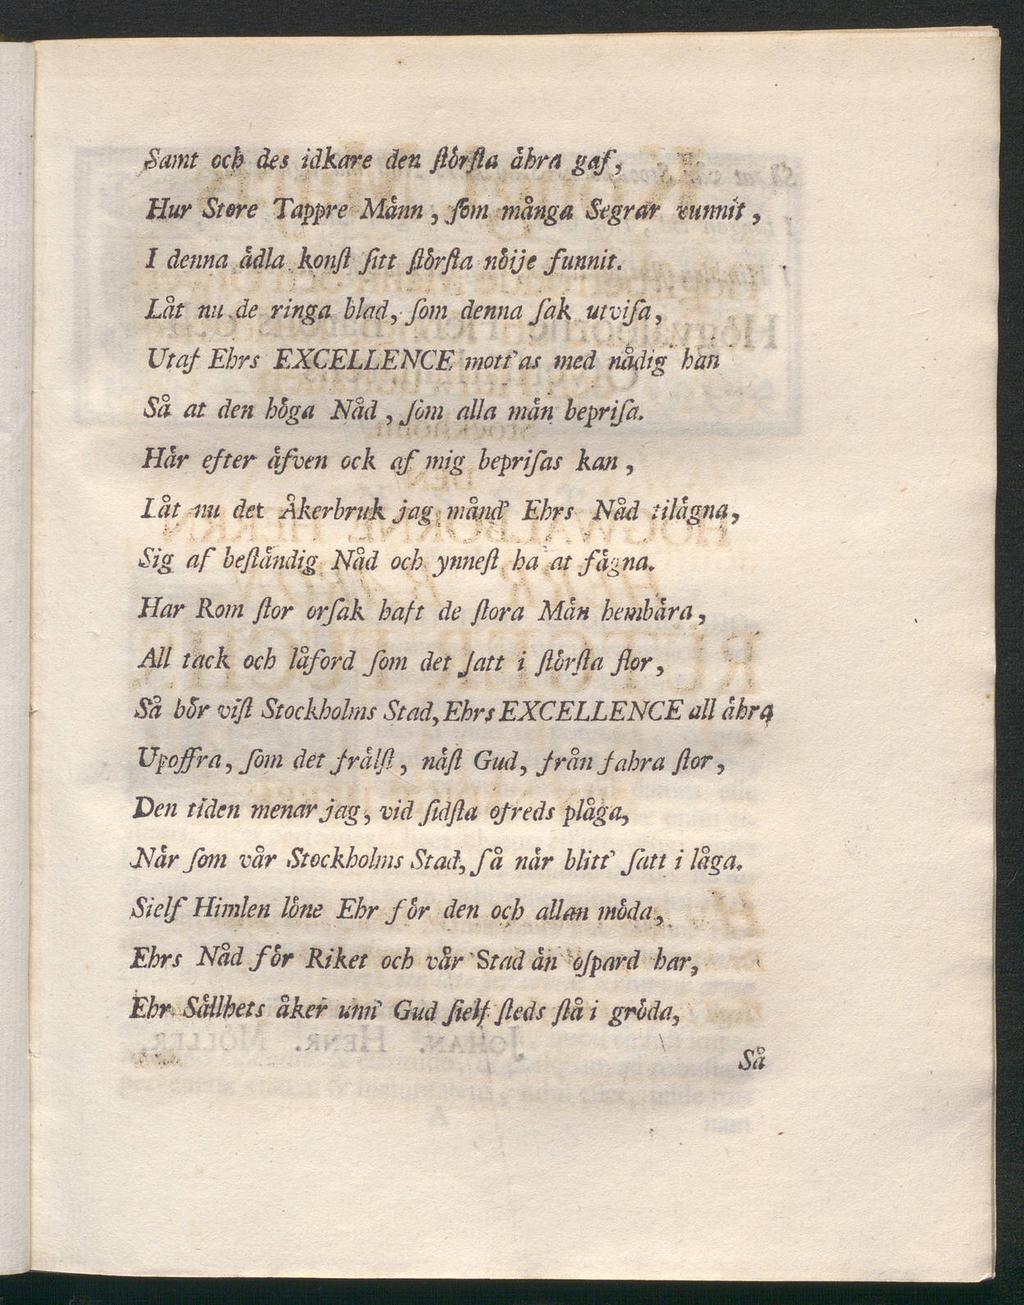 Samt och des idkare den ſtörſta ähra gaf,
Hur Store Tappre Männ, ſom många Segrar vunnit,
I denna ädla konſt ſitt ſtörſta nöije funnit.
Låt nu de ringa blad, ſom denna ſak utviſa,
Utaf Ehrs EXCELLENCE mott'as med nådig han
Så at den höga Nåd, ſom alla män bepriſa.
Här efter äfven ock af mig bepriſas kan,
Låt nu det Åkerbruk jag månd' Ehrs Nåd tilägna,
Sig af beſtändig Nåd och ynneſt ha at fägna.
Har Rom ſtor orſak haft de ſtora Män hembära,
All tack och låford ſom det ſatt i ſtörſta flor,
Så bör viſt Stockholms Stad, Ehrs EXCELLENCE all ähra
Upoffra, ſom det frälſt, näſt Gud, från fahra ſtor,
Den tiden menar jag, vid ſidſta ofreds plåga,
När ſom vår Stockholms Stad, ſå när blitt' ſatt i låga.
Sielf Himlen löne Ehr för den och allan möda,
Ehrs Nåd för Riket och vår Stad än oſpard har,
Ehr Sällhets åker unn' Gud ſielf ſteds ſtå i gröda,
Så